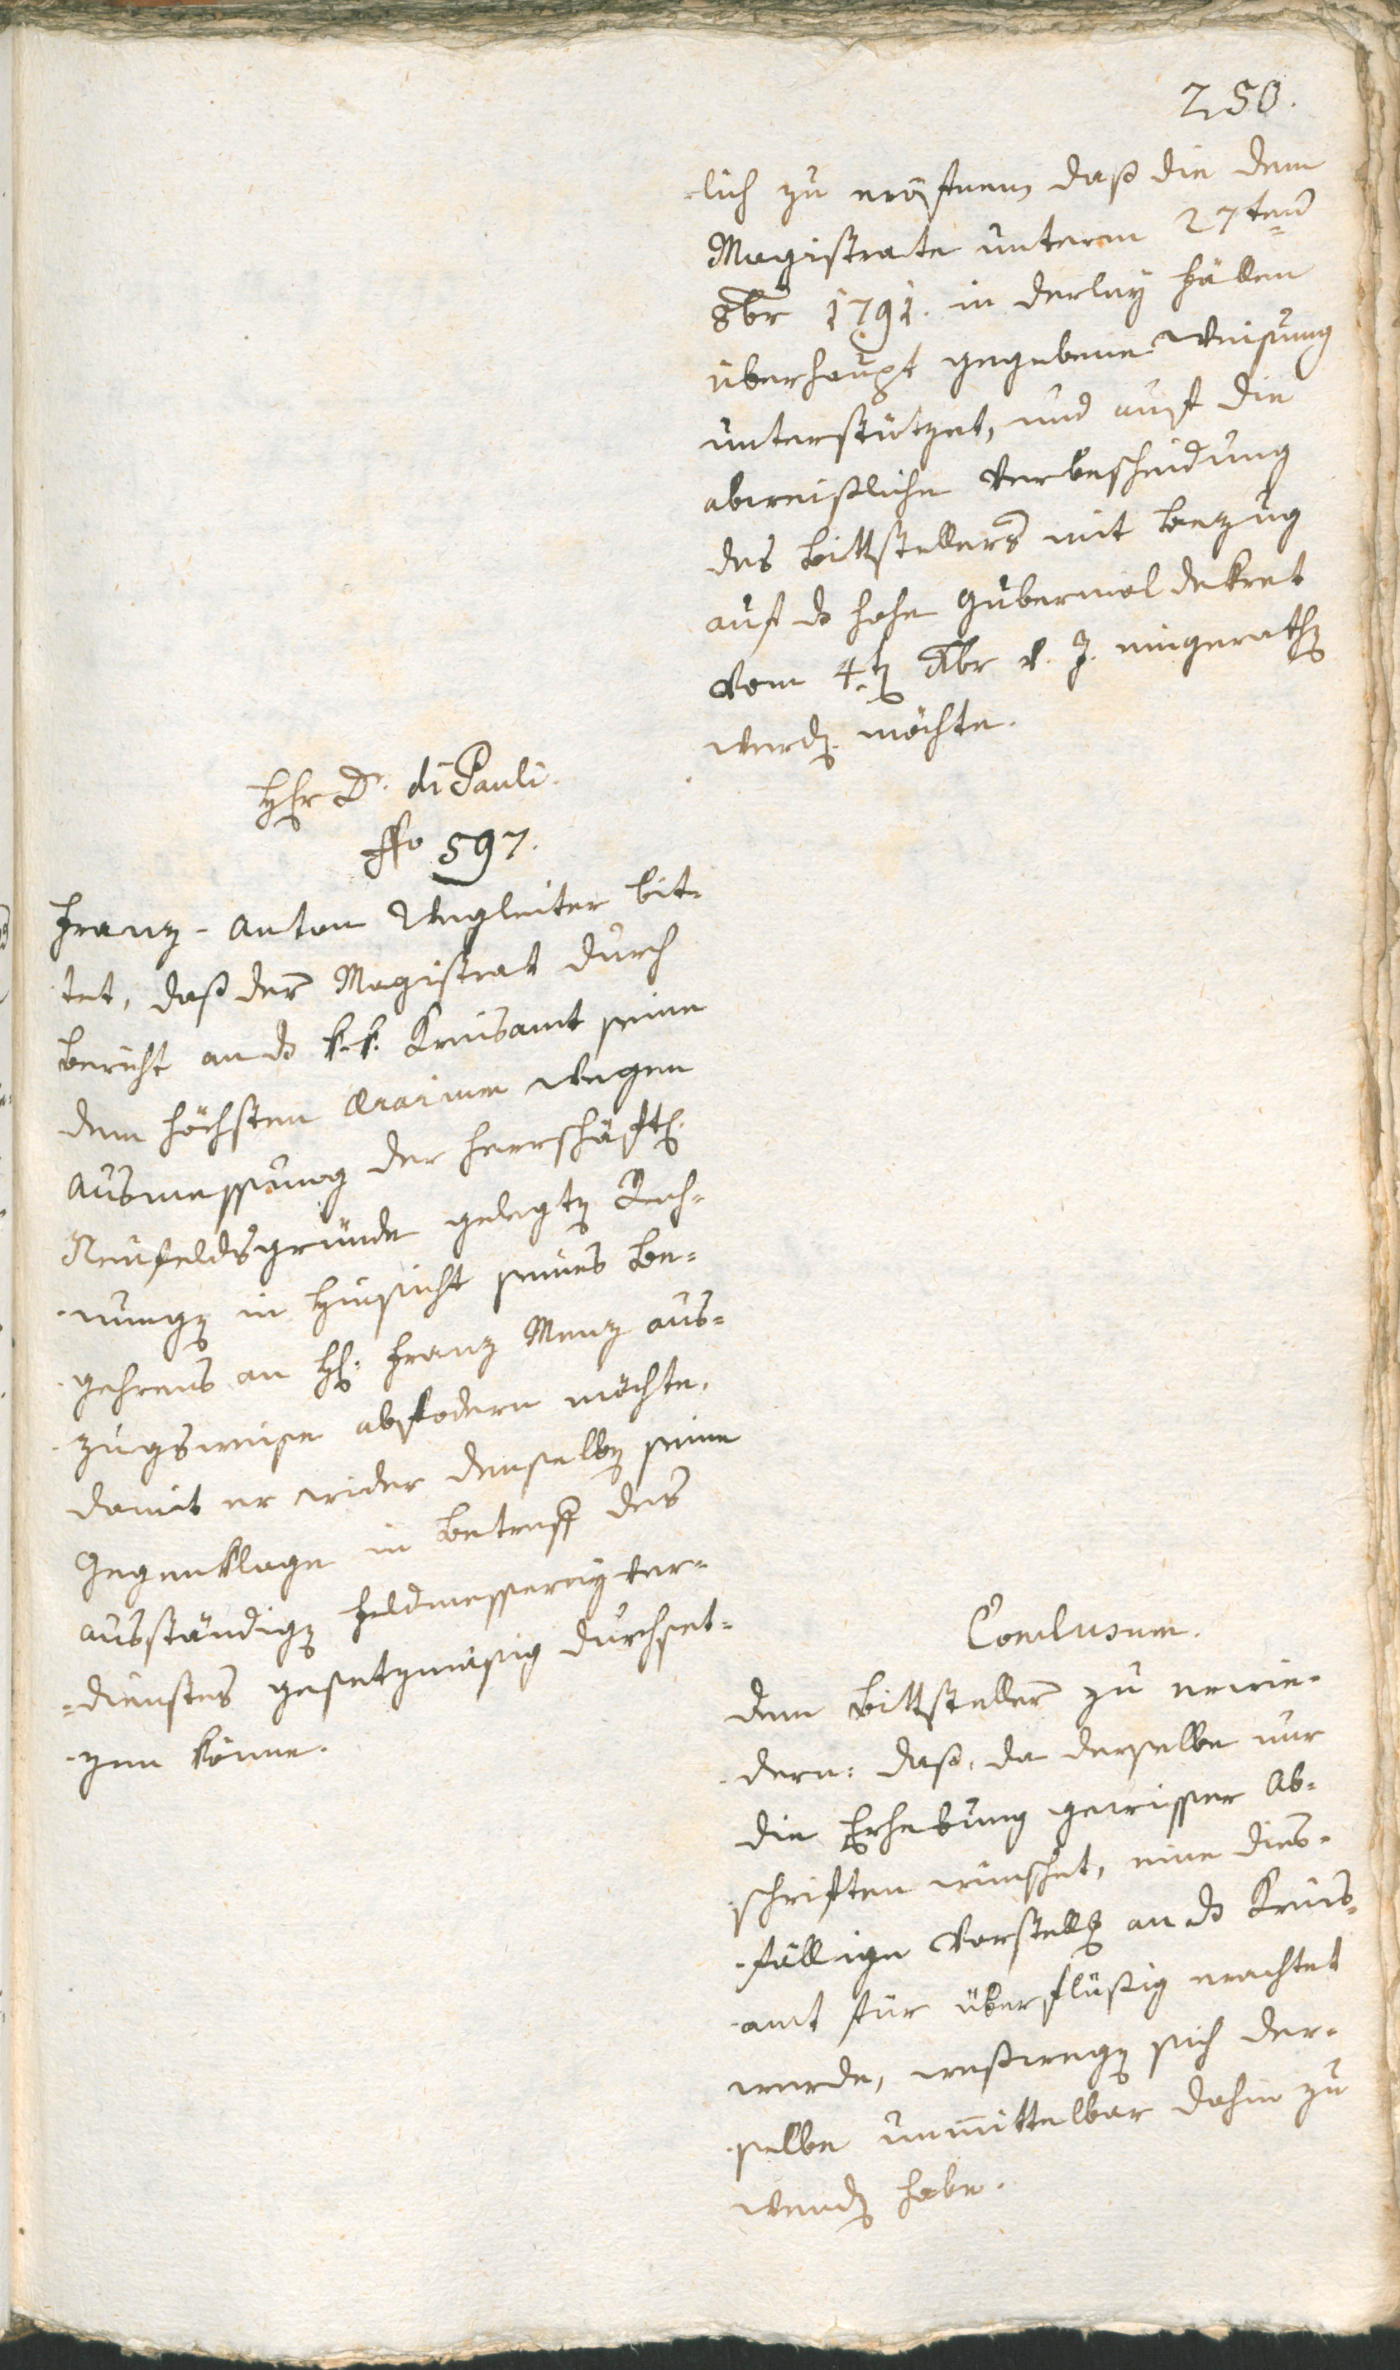 250.
-lich zu eröffnen, daß die dem
Magistrate unterm 27ten
8br 1791. in derley Fällen
überhaupt gegebene Weisung
unterstützet, und auf die
abweißliche Verbescheidung
des Bittstellers mit Bezug
auf ds hohe Gubernial Dekret
vom 4ten Xbr v. J. eingerathen
werden möchte.
Hr Dr. di Pauli.
Nro 597.
Franz-Anton Wegleiter bit-
tet, daß der Magistrat durch
Bericht an ds k.k. Kreisamt seine
dem höchsten Aerarium wegen
Ausmessung der herrschäftl.
Neufeldsgründe gelegten Rech-
-nungen in Hinsicht seines Be-
gehrens an H. Franz Menz aus-
-zugsweise abfodern möchte,
damit er wider denselben seine
Gegenklage in Betreff des
ausständigen Feldmesserey Ver-
-dienstes gesetzmäsig durchset-
-zen könne.
Conclusum.
Dem Bittsteller zu erwie-
-dern: daß, da derselbe nur
die Erhebung gewisser Ab-
schriften wünschet, eine dies-
-fällige Vorstellg an ds Kreis-
-amt für überflüßig erachtet
werde, weßwegen sich der-
-selbe unmittelbar dahin zu
wenden habe.